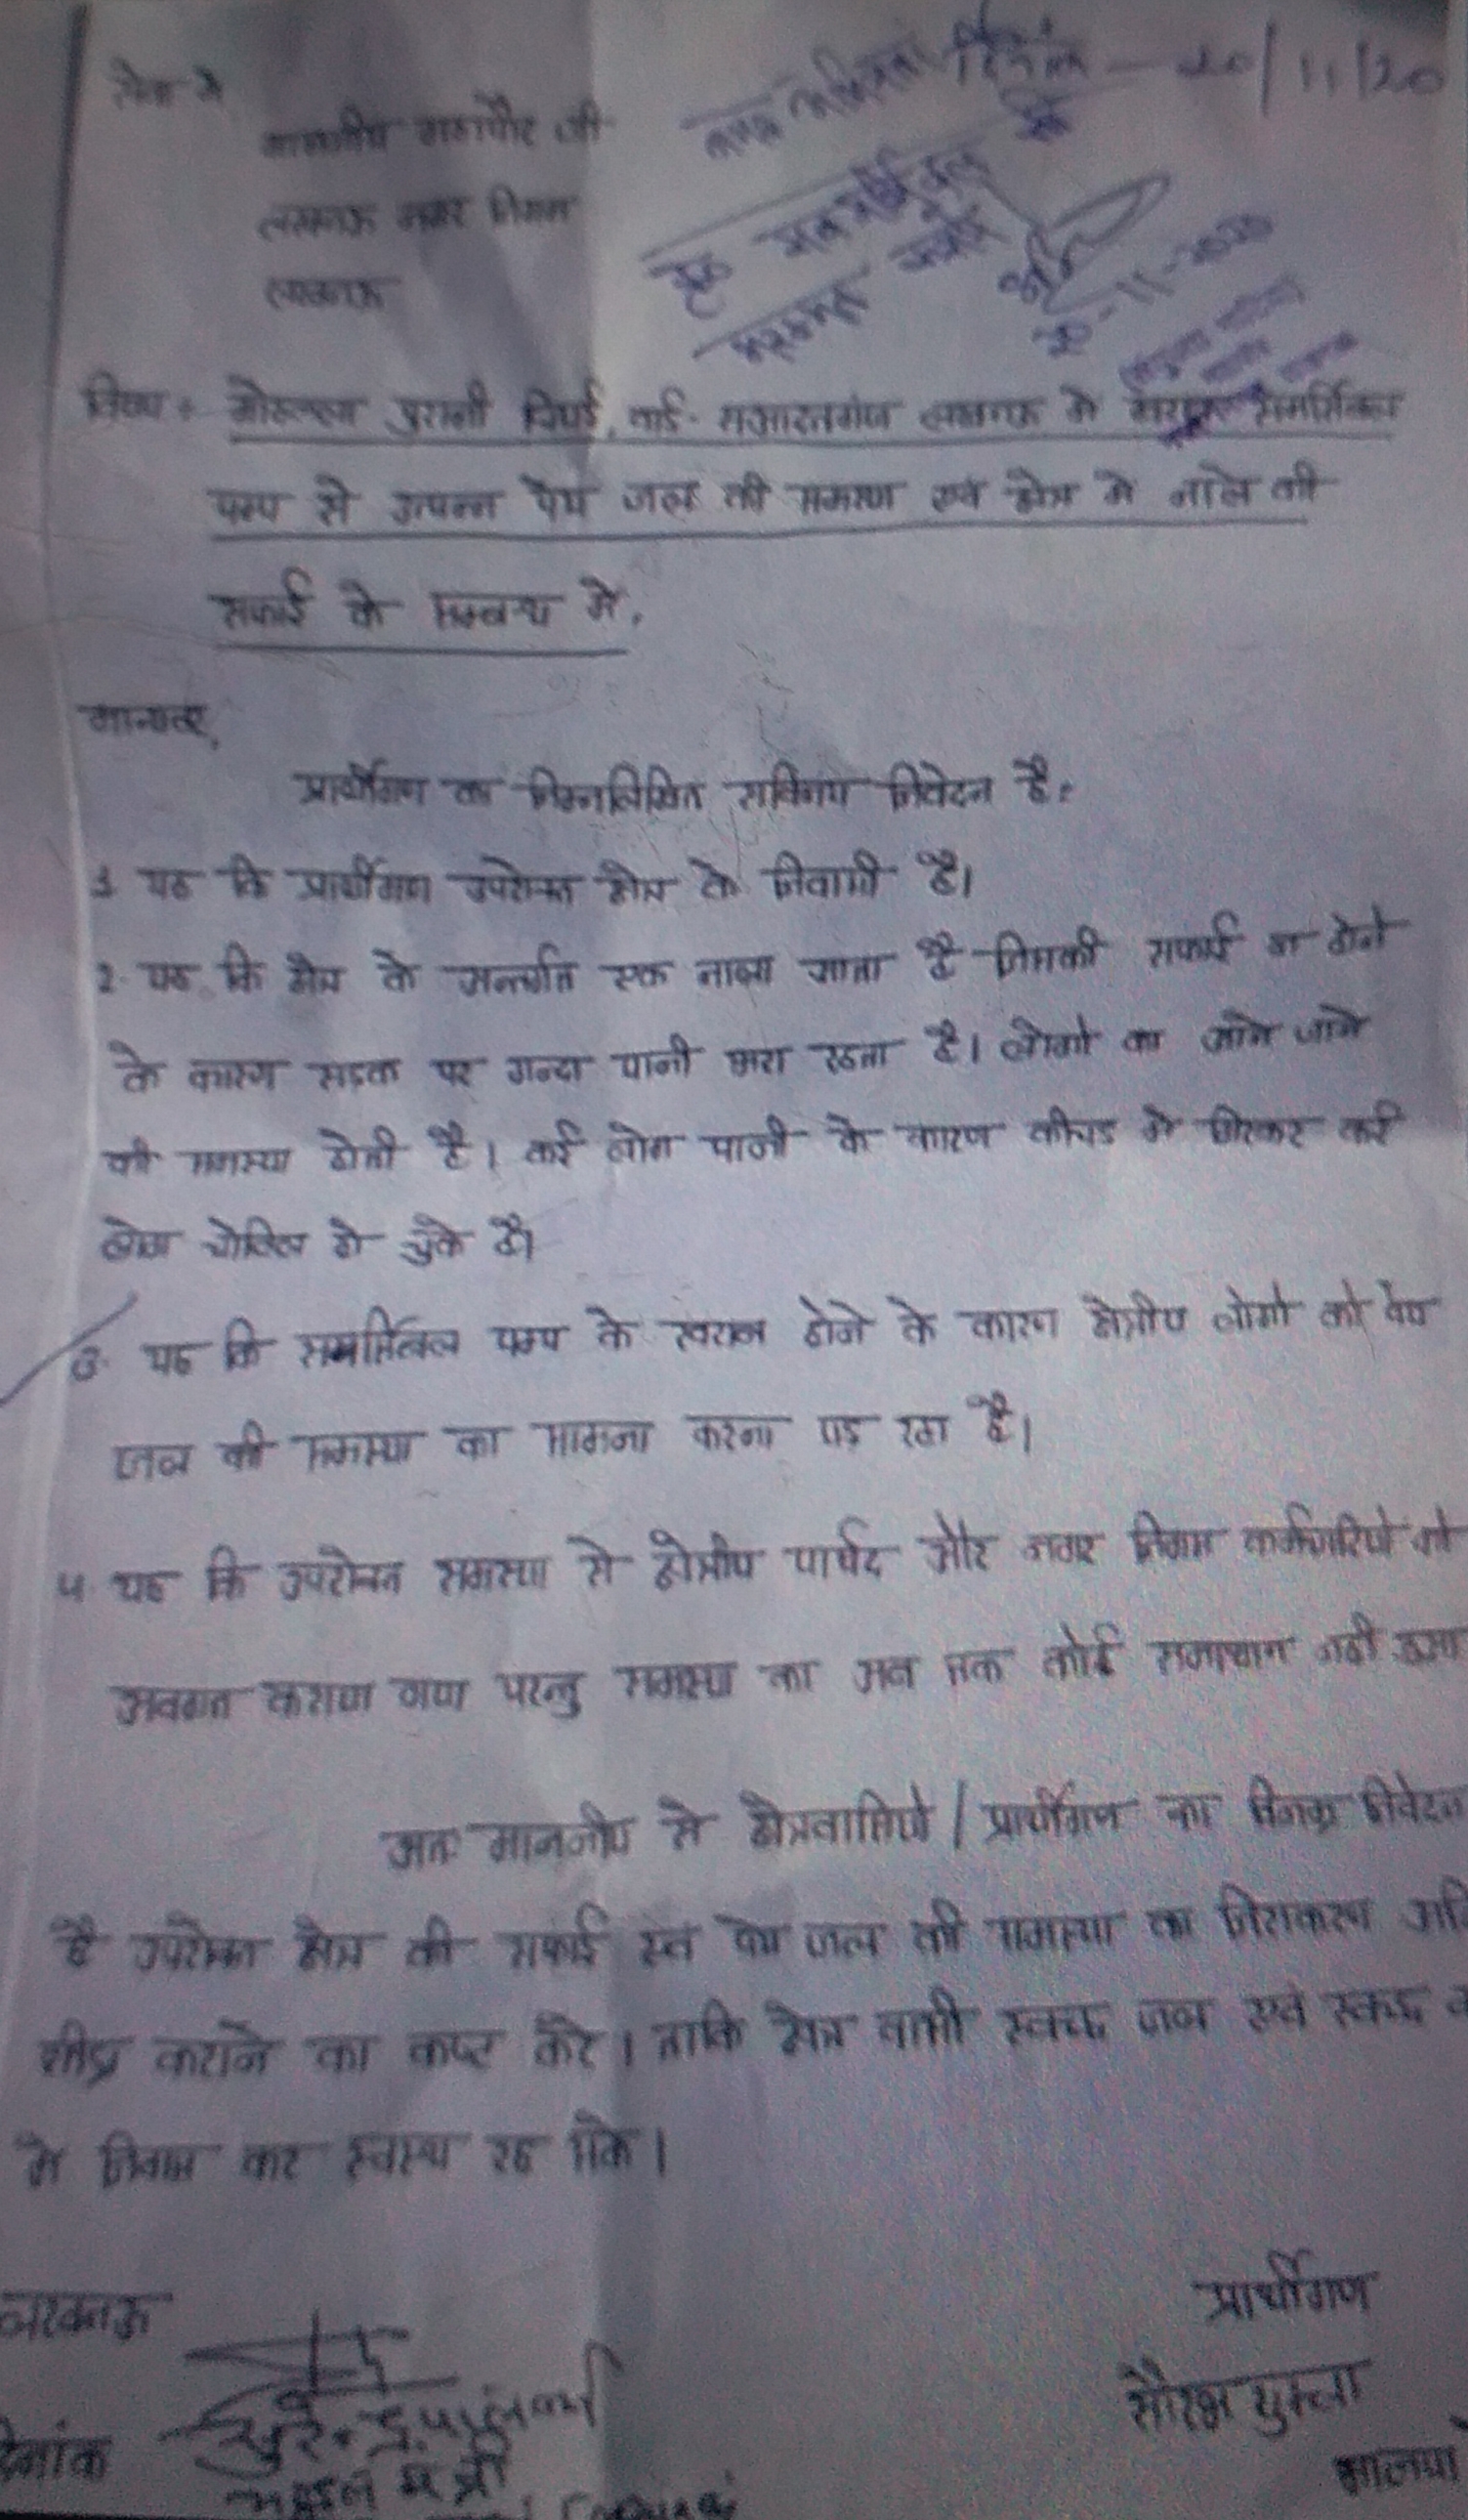 सेवा मे
माननीय महापौर जी
लखनऊ नगर निगम
लखनऊ
दिनांक - 20/11/20
20-11-2020
विषय: मोहल्ला पुरानी वार्ड- सआदतगंज लखनऊ मे समर्सिबल
पम्प से उत्पन्न पेय जल की समस्या एवं क्षेत्र मे नाले की
सफाई के सम्बन्ध मे,
मान्यवर,
प्रार्थीगण का निम्नलिखित सविनय निवेदन है:
1. यह कि प्रार्थीगण उपरोक्त क्षेत्र के निवासी है।
2. यह कि क्षेत्र के अन्तर्गत एक नाला आता है जिसकी सफाई ना होने
के कारण सड़क पर गन्दा पानी भरा रहता है। लोगो का आने जाने
की समस्या होती है। कई लोग पानी के कारण कीचड मे गिरकर कई
लोग चोटिल हो चुके है।
3. यह कि समर्सिबल पम्प के खराब होने के कारण क्षेत्रीय लोगो को पेय
जल की समस्या का सामना करना पड़ रहा है।
4. यह कि उपरोक्त समस्या से क्षेत्रीय पार्षद और नगर निगम कर्मचारियो को
अवगत कराया गया परन्तु समस्या का अब तक कोई समाधान नही हुआ
अतः माननीय से क्षेत्रवासियो / प्रार्थीगण का विनम्र निवेदन
है उपरोक्त क्षेत्र की सफाई एवं पेय जल की समस्या का निराकरण अति
शीघ्र कराने का कष्ट करे। ताकि क्षेत्र वासी स्वच्छ जल एवं स्वच्छ
मे निवास कर स्वस्थ रह सके।
प्रार्थीगण
लखनऊ
सौरभ शुक्ला
दिनांक
भाजपा